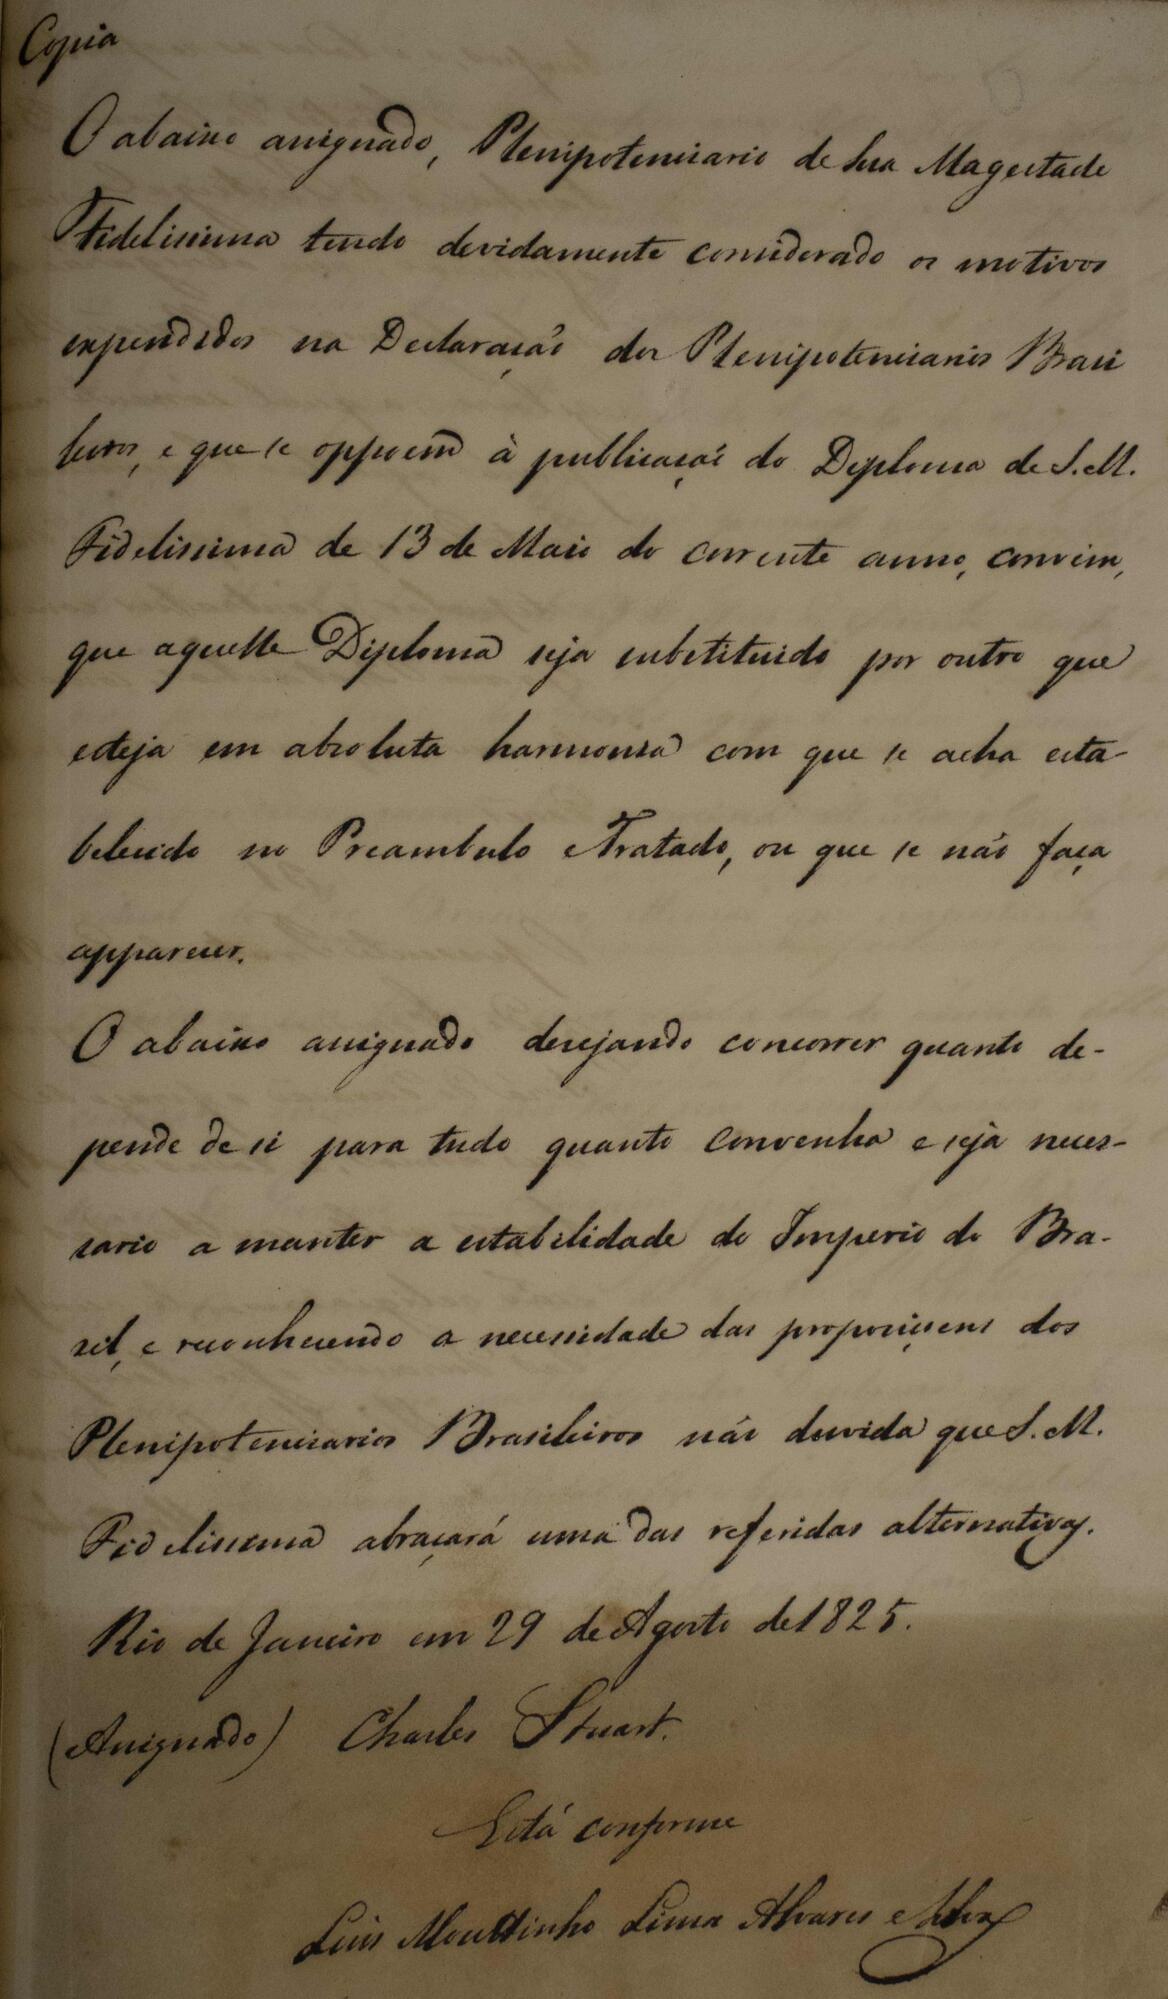 Copia
O abaixo assignado, Plenipotenciario de Sua Magestade
Fidelissima tendo devidamente considerado os motivos
expendidos na Declaração dos Plenipotenciarios Brasi
leiros, e que se oppoem à publicação do Diploma de S. M.
Fidelissima de 13 de Maio do corrente anno, convém,
que aquelle Diploma seja substituido por outro que
esteja em absoluta harmonia com que se acha esta-
belecido no Preambulo e Tratado, ou que se não faça
apparecer.
O abaixo assignado desejando concorrer quanto de-
pende de si para tudo quanto convenha e seja neces-
sario a manter a estabilidade do Imperio do Bra-
sil, e reconhecendo a necessidade das proposiçoens dos
Plenipotenciarios Brasileiros não duvida que S. M.
Fidelissima abraçará uma das referidas alternativas.
Rio de Janeiro em 29 de Agosto de 1825.
(Assignado) Charles Stuart.
Está conforme
Luis Mouttinho Lima Alvares e Silva